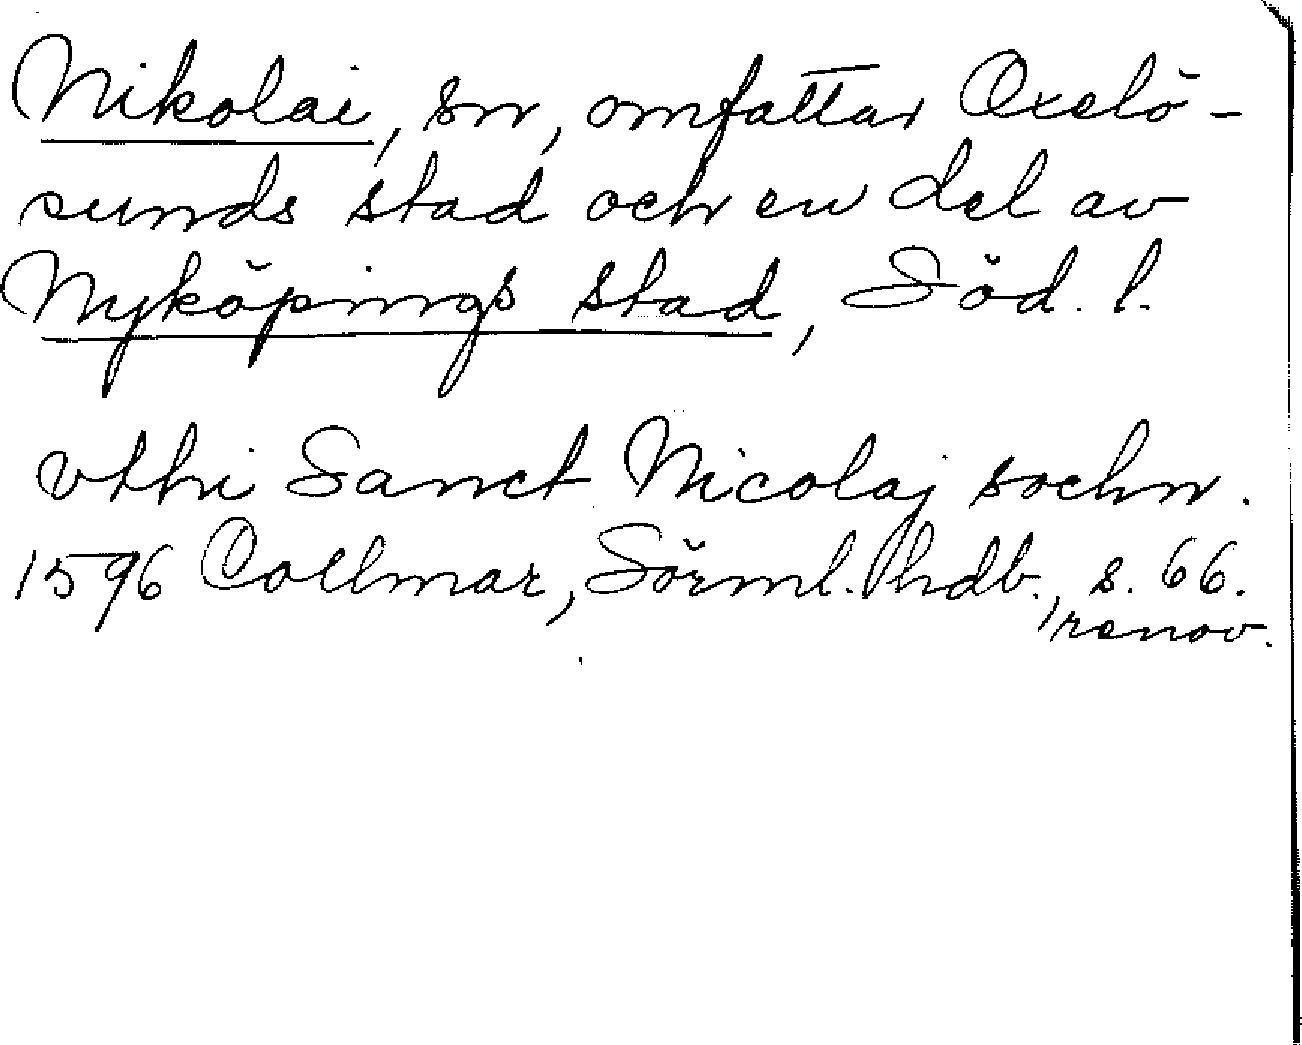 Nikolai, sn, omfattar Oxelö-
sunds stad och en del av
Nyköpings stad, Söd. l.
vthi Sanct Nicolaj sochn.
1596 Collmar, Sörml. hdb., s. 66.
renov.